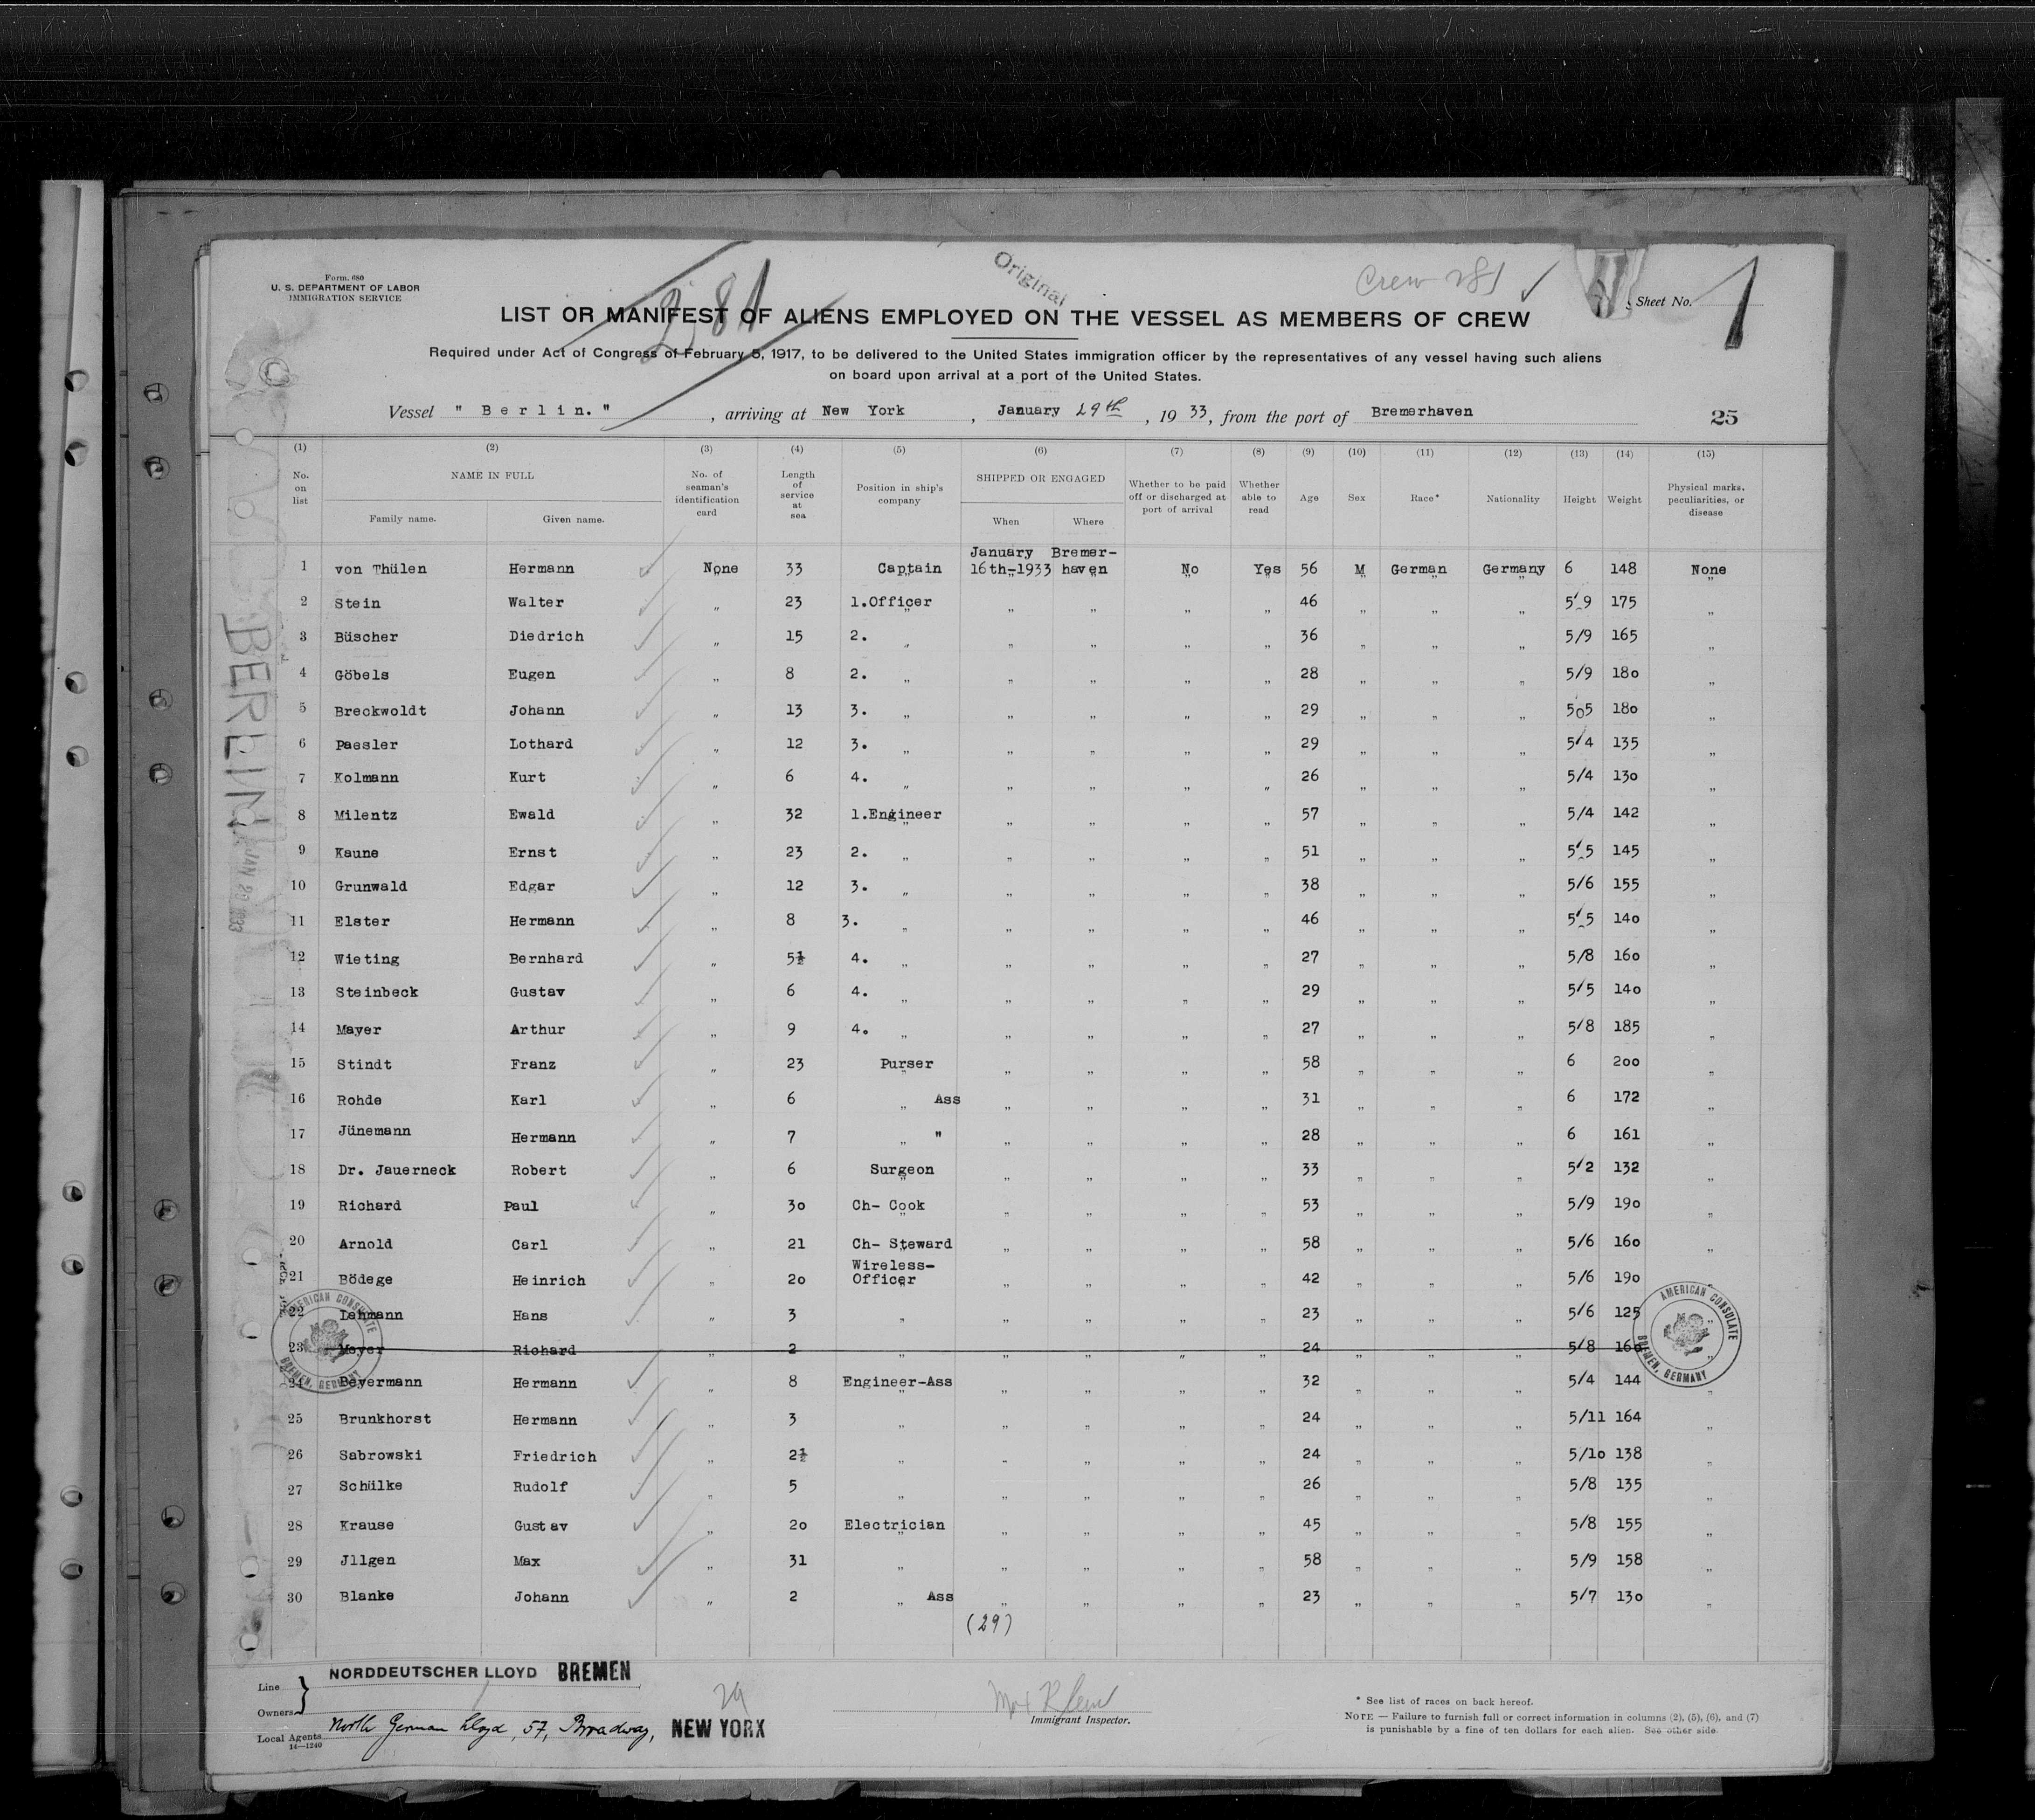 Form. 680
U. S. DEPARTMENT OF LABOR
IMMIGRATION SERVICE
281
Original
Crew 281 ✓
Sheet No. 1
LIST OR MANIFEST OF ALIENS EMPLOYED ON THE VESSEL AS MEMBERS OF CREW
Required under Act of Congress of February 5, 1917, to be delivered to the United States immigration officer by the representatives of any vessel having such aliens
on board upon arrival at a port of the United States.
Vessel " B e r l i n. " , arriving at New York , January 29th , 19 33, from the port of Bremerhaven
25
(1) (2) (3) (4) (5) (6) (7) (8) (9) (10) (11) (12) (13) (14) (15)
No. on list NAME IN FULL Family name. Given name. No. of seaman's identification card Length of service at sea Position in ship's company SHIPPED OR ENGAGED When Where Whether to be paid off or discharged at port of arrival Whether able to read Age Sex Race* Nationality Height Weight Physical marks, peculiarities, or disease
1 von Thülen Hermann None 33 Captain January 16th-1933 Bremerhaven No Yes 56 M German Germany 6 148 None
2 Stein Walter " 23 1.Officer " " " " 46 " " " 5/9 175 "
3 Büscher Diedrich " 15 2. " " " " " 36 " " " 5/9 165 "
4 Göbels Eugen " 8 2. " " " " " 28 " " " 5/9 180 "
5 Breckwoldt Johann " 13 3. " " " " " 29 " " " 505 180 "
6 Paesler Lothard " 12 3. " " " " " 29 " " " 5/4 135 "
7 Kolmann Kurt " 6 4. " " " " " 26 " " " 5/4 130 "
8 Milentz Ewald " 32 1.Engineer " " " " 57 " " " 5/4 142 "
9 Kaune Ernst " 23 2. " " " " " 51 " " " 5/5 145 "
10 Grunwald Edgar " 12 3. " " " " " 38 " " " 5/6 155 "
11 Elster Hermann " 8 3. " " " " " 46 " " " 5/5 140 "
12 Wieting Bernhard " 5½ 4. " " " " " 27 " " " 5/8 160 "
13 Steinbeck Gustav " 6 4. " " " " " 29 " " " 5/5 140 "
14 Mayer Arthur " 9 4. " " " " " 27 " " " 5/8 185 "
15 Stindt Franz " 23 Purser " " " " 58 " " " 6 200 "
16 Rohde Karl " 6 " Ass " " " " 31 " " " 6 172 "
17 Jünemann Hermann " 7 " " " " " " 28 " " " 6 161 "
18 Dr. Jauerneck Robert " 6 Surgeon " " " " 33 " " " 5/2 132 "
19 Richard Paul " 30 Ch- Cook " " " " 53 " " " 5/9 190 "
20 Arnold Carl " 21 Ch- Steward " " " " 58 " " " 5/6 160 "
21 Bödege Heinrich " 20 Wireless-Officer " " " " 42 " " " 5/6 190 "
22 Lahmann Hans " 3 " " " " " 23 " " " 5/6 125 "
23 Meyer Richard " 2 " " " " " 24 " " " 5/8 160 "
24 Beyermann Hermann " 8 Engineer-Ass " " " " 32 " " " 5/4 144 "
25 Brunkhorst Hermann " 3 " " " " " 24 " " " 5/11 164 "
26 Sabrowski Friedrich " 2½ " " " " " 24 " " " 5/10 138 "
27 Schülke Rudolf " 5 " " " " " 26 " " " 5/8 135 "
28 Krause Gustav " 20 Electrician " " " " 45 " " " 5/8 155 "
29 Jllgen Max " 31 " " " " " 58 " " " 5/9 158 "
30 Blanke Johann " 2 " Ass " " " " 23 " " " 5/7 130 "
(29)
BERLIN
JAN 29 1933
AMERICAN CONSULATE BREMEN, GERMANY
AMERICAN CONSULATE BREMEN, GERMANY
Line NORDDEUTSCHER LLOYD BREMEN
Owners
Local Agents North German Lloyd, 57, Broadway, NEW YORK
14—1240
29
Immigrant Inspector.
* See list of races on back hereof.
NOTE — Failure to furnish full or correct information in columns (2), (5), (6), and (7)
is punishable by a fine of ten dollars for each alien. See other side.